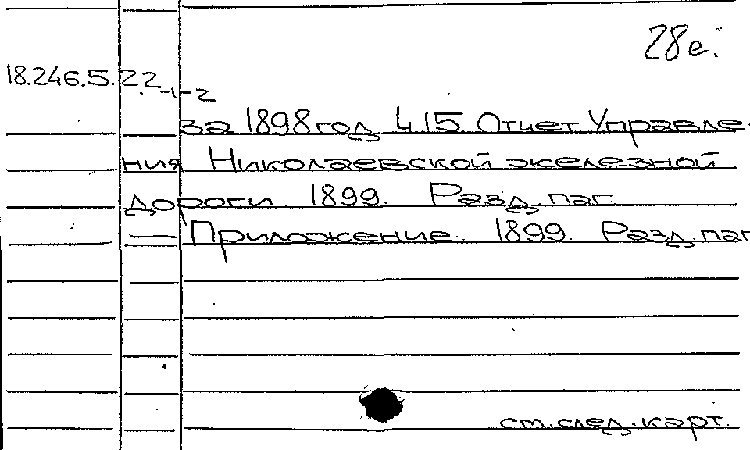 28е.
18.246.5.22-1-2
за 1898 год Ч.15. Отчет Управле-
ния Николаевской железной
дороги. 1899. Разд. паг.
— Приложение. 1899. Разд. паг
см. след. карт.